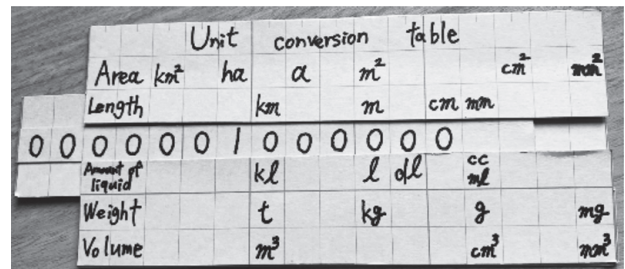 Unit conversion table
Area km² ha a m² cm² mm²
Length km m cm mm
0 0 0 0 0 0 1 0 0 0 0 0 0 0
Amount of liquid kl l dl cc ml
Weight t kg g mg
Volume m³ cm³ mm³